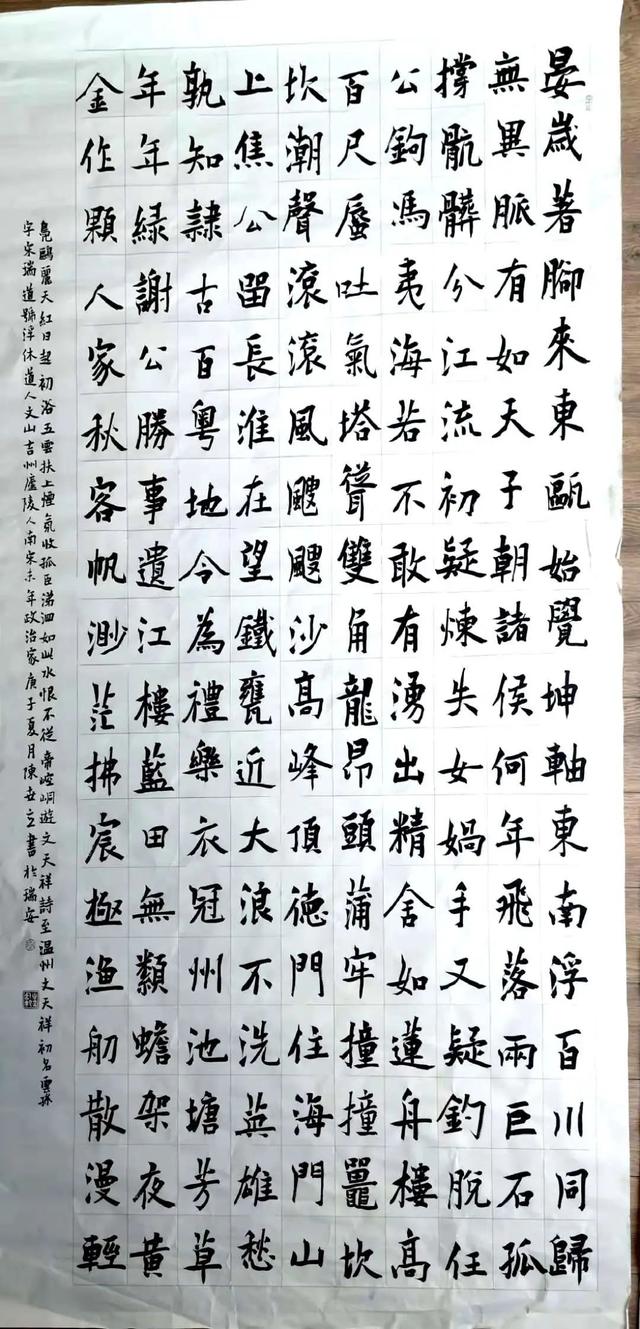 晏歲著腳來東甌始覺坤軸東南浮百川同歸
無異脈有如天子朝諸侯何年飛落兩巨石孤
撐骯髒兮江流初疑煉失女媧手又疑釣脫任
公鉤馮夷海若不敢有湧出精舍如蓮舟樓高
百尺蜃吐氣塔聳雙角龍昂頭蒲牢撞撞鼉坎
坎潮聲滾滾風颼颼沙高峰頂德門住海門山
上焦公留長淮在望鐵甕近大浪不洗英雄愁
孰知隷古百粵地今為禮樂衣冠州池塘芳草
年年綠謝公勝事遺江樓藍田無纇蟾架夜黃
金作顆人家秋客帆渺茫拂宸極漁舠散漫輕
鳧鷗麗天紅日起初浴五雲扶上煙氣收孤臣涕泗如此水恨不從帝崆峒遊文天祥詩至溫州文天祥初名雲孫
字宋瑞道號浮休道人文山吉州廬陵人南宋末年政治家庚子夏月陳安立書於瑞安